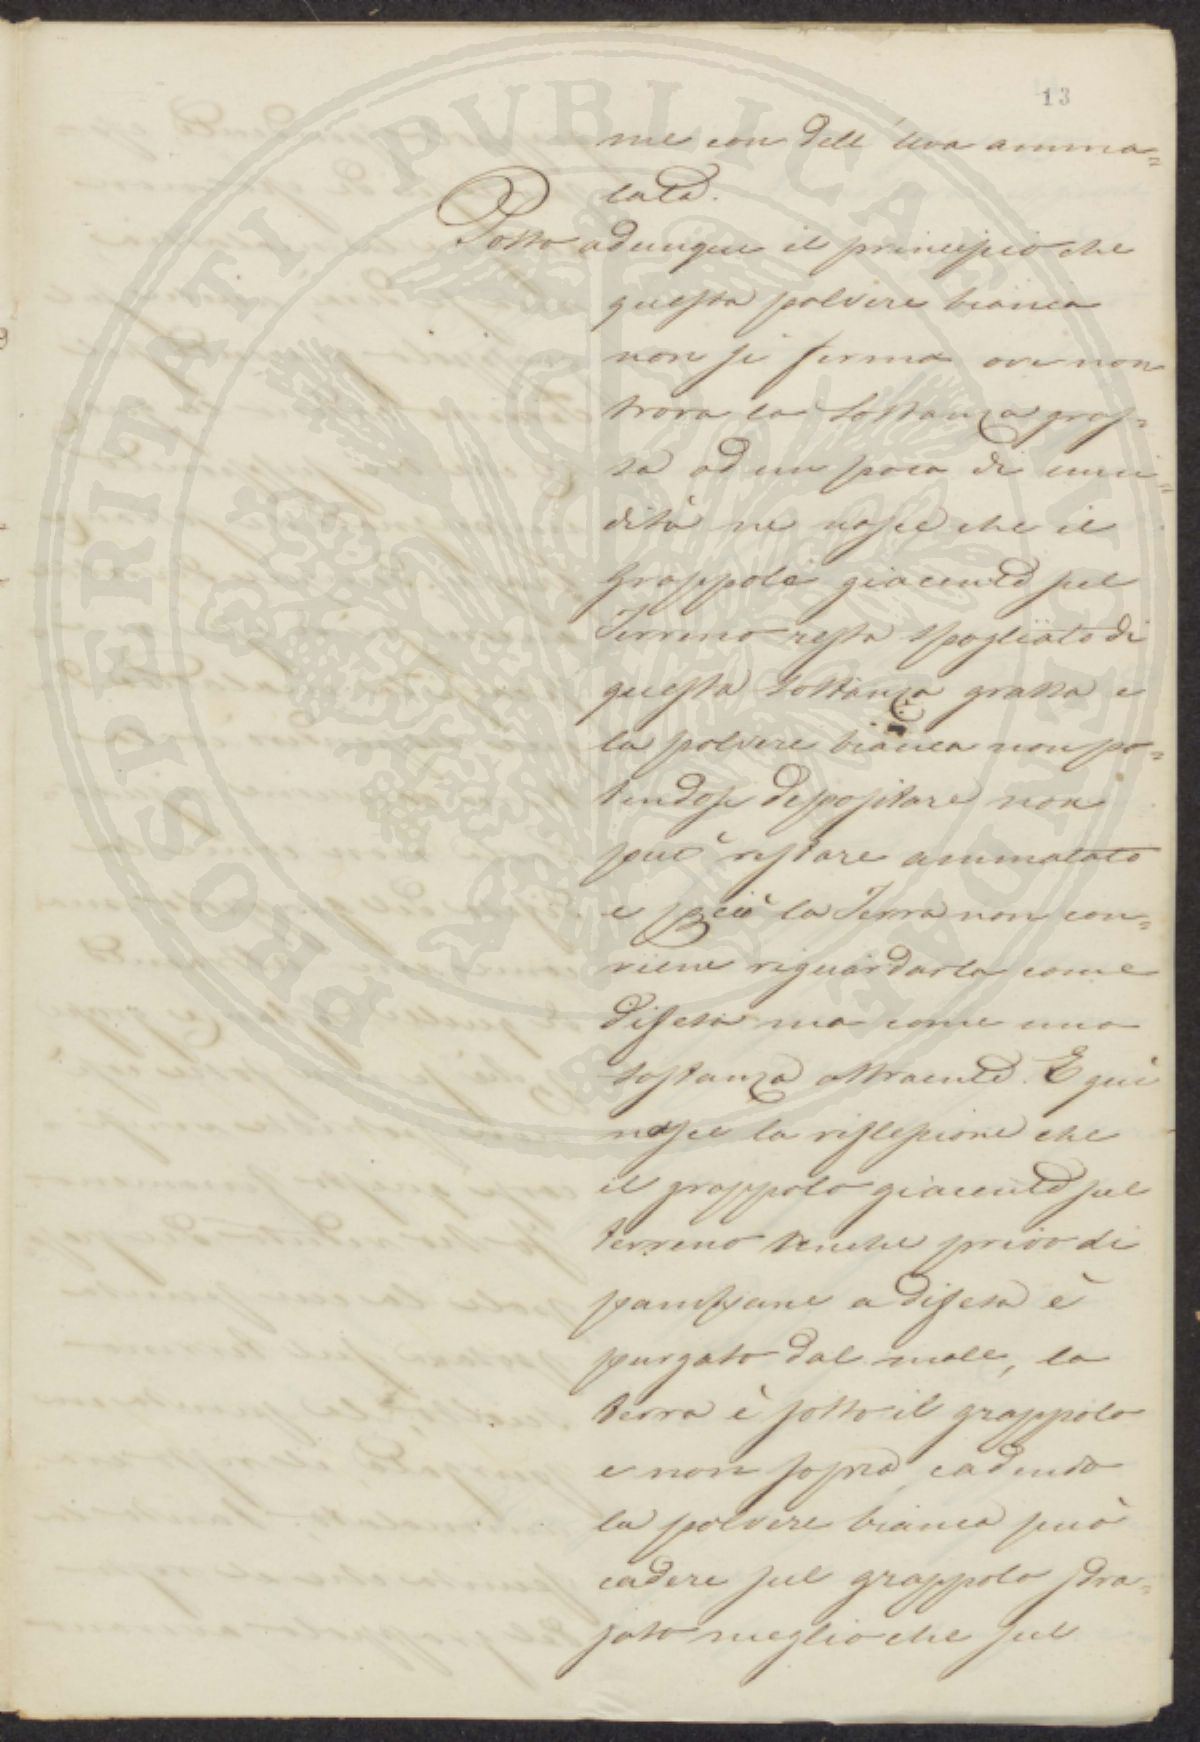 13
me con dell'uva amma=
lata.
Posto adunque il principio che
questa polvere bianca
non si ferma ove non
trova la sostanza gras=
sa ad un poco di umi=
dità ne nasce che il
Grappolo giacente sul
Terreno resta spogliato di
questa sostanza grassa e
la polvere bianca non po=
tendosi depositare non
può restare ammalato
e perciò la Terra non con=
viene riguardarla come
difesa ma come una
sostanza attraente. E quì
nasce la riflessione che
il grappolo giacente sul
terreno benche privo di
pampane a difesa è
purgato dal male, la
terra è sotto il grappolo
e non sopra, cadendo
la polvere bianca può
cadere sul grappolo sdra=
jato meglio che sul
PROSPERITATI PUBLICAE AUGENDAE